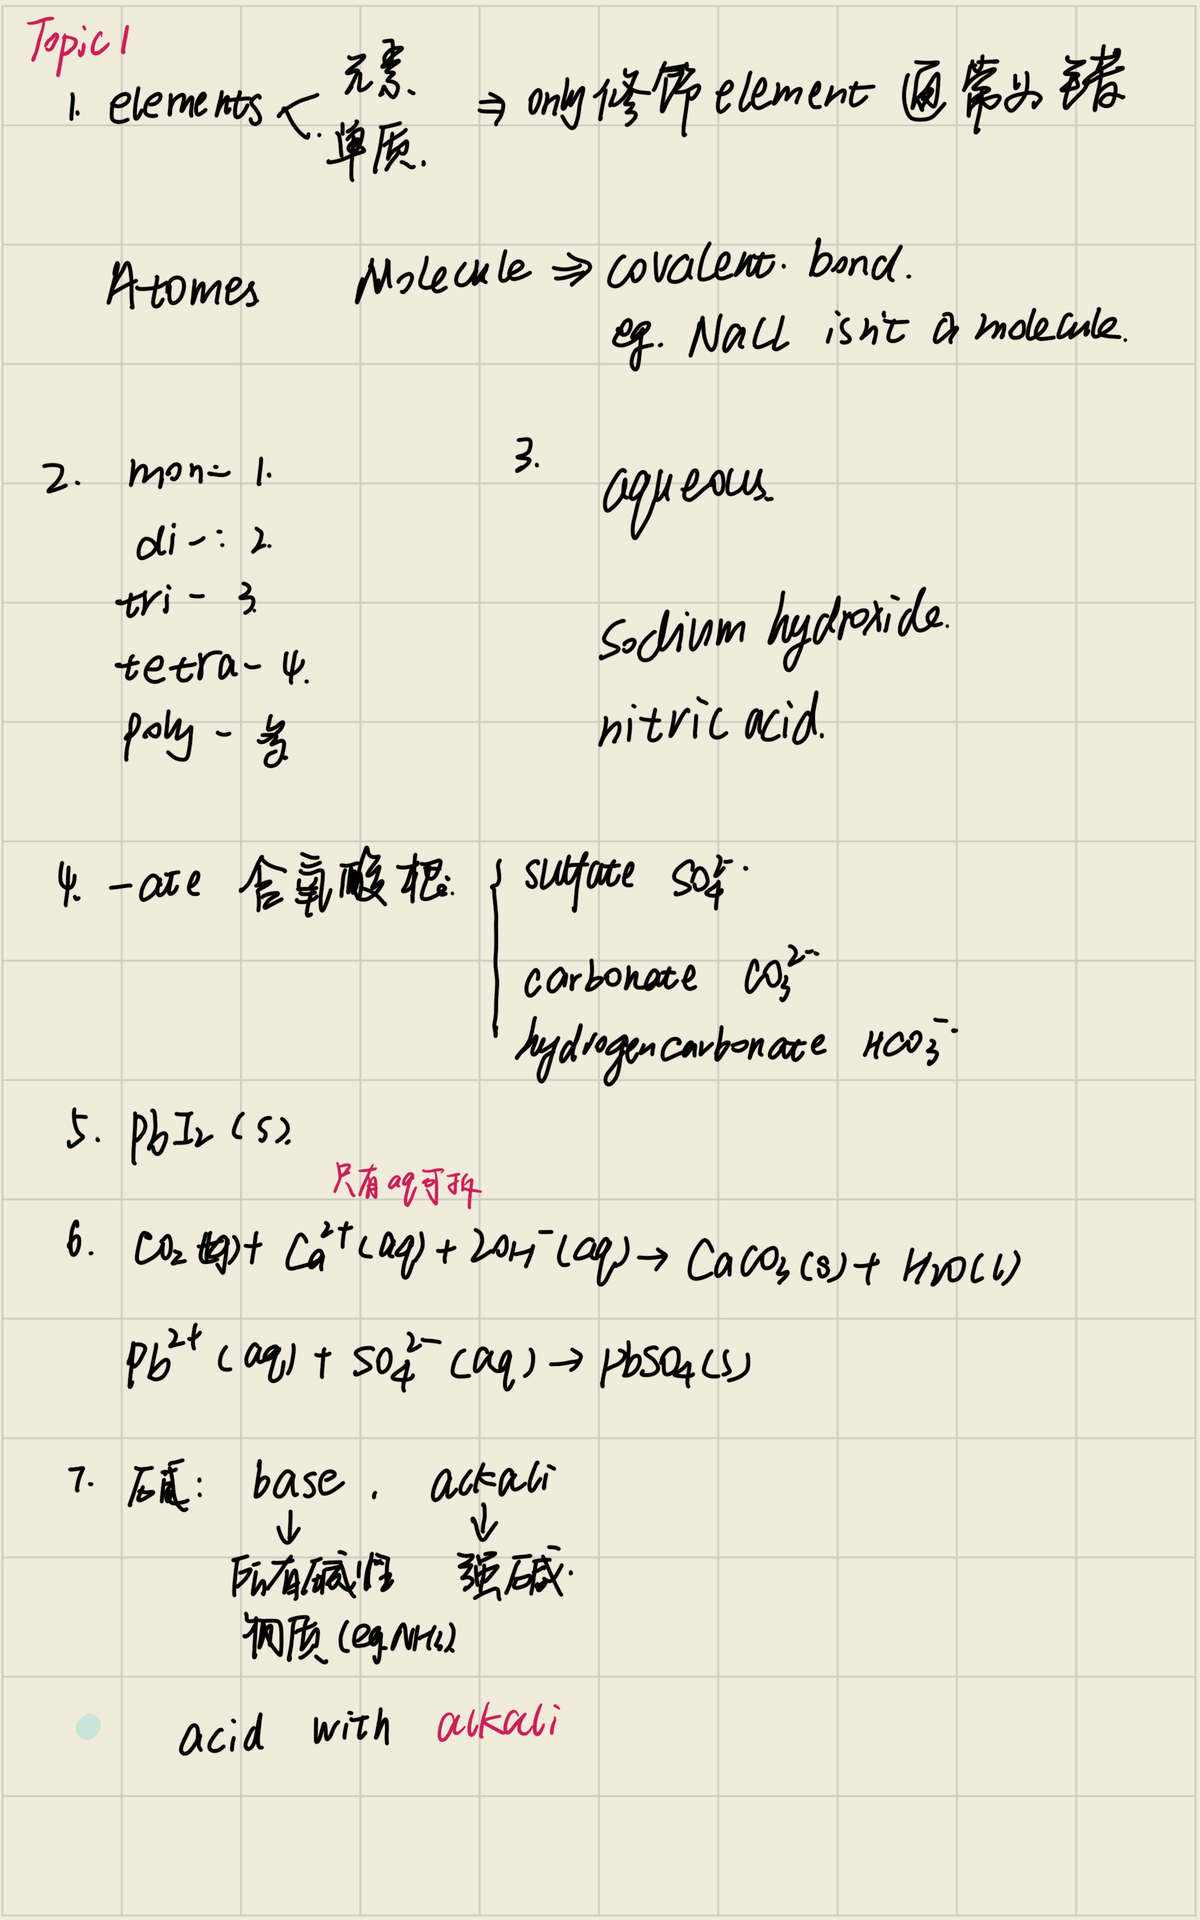 Topic 1
1. elements < 元素.
单质.
⇒ only 修饰 element 通常为错
Atomes Molecule ⇒ covalent. bond.
eg. NaCl isn't a molecule.
2. mon- 1.
di -: 2.
tri - 3.
tetra- 4.
poly - 多
3.
aqueous.
sodium hydroxide.
nitric acid.
4. -ate 含氧酸根: { sulfate SO₄²⁻.
carbonate CO₃²⁻
hydrogencarbonate HCO₃⁻.
5. PbI₂ (s).
只有aq可拆
6. CO₂ (g) + Ca²⁺ (aq) + 2OH⁻ (aq) → CaCO₃ (s) + H₂O (l)
Pb²⁺ (aq) + SO₄²⁻ (aq) → PbSO₄ (s)
7. 碱: base. alkali
↓ ↓
所有碱性 强碱.
物质 (eg. NH₃)
acid with alkali